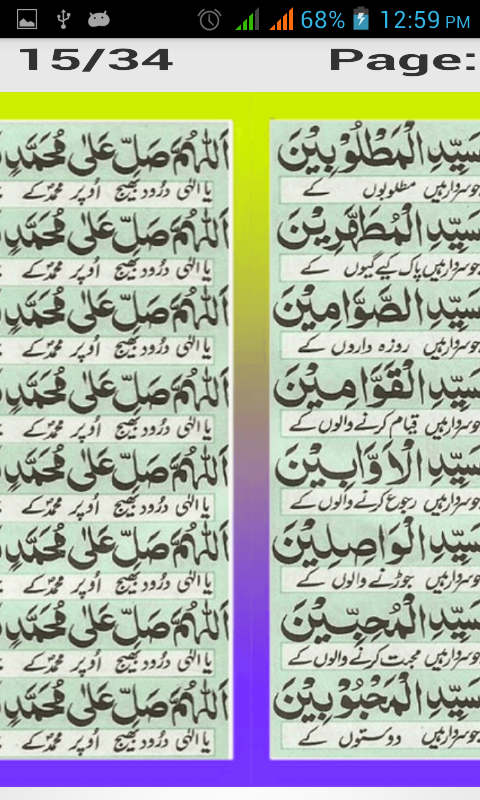 68% 12:59 PM
15/34 Page:
سَيِّدِ الْمَطْلُوْبِيْنَ
جو سردار ہیں مطلوبوں کے
سَيِّدِ الْمُطَهَّرِيْنَ
جو سردار ہیں پاک کیے گیوں کے
سَيِّدِ الصَّوَّامِيْنَ
جو سردار ہیں روزہ داروں کے
سَيِّدِ الْقَوَّامِيْنَ
جو سردار ہیں قیام کرنے والوں کے
سَيِّدِ الْاَوَّابِيْنَ
جو سردار ہیں رجوع کرنے والوں کے
سَيِّدِ الْوَاصِلِيْنَ
جو سردار ہیں جوڑنے والوں کے
سَيِّدِ الْمُحِبِّيْنَ
جو سردار ہیں محبت کرنے والوں کے
سَيِّدِ الْمَحْبُوْبِيْنَ
جو سردار ہیں دوستوں کے
اَللّٰهُمَّ صَلِّ عَلٰى مُحَمَّدٍ
یا الٰہی درود بھیج اُوپر محمدؐ کے
اَللّٰهُمَّ صَلِّ عَلٰى مُحَمَّدٍ
یا الٰہی درود بھیج اُوپر محمدؐ کے
اَللّٰهُمَّ صَلِّ عَلٰى مُحَمَّدٍ
یا الٰہی درود بھیج اُوپر محمدؐ کے
اَللّٰهُمَّ صَلِّ عَلٰى مُحَمَّدٍ
یا الٰہی درود بھیج اُوپر محمدؐ کے
اَللّٰهُمَّ صَلِّ عَلٰى مُحَمَّدٍ
یا الٰہی درود بھیج اُوپر محمدؐ کے
اَللّٰهُمَّ صَلِّ عَلٰى مُحَمَّدٍ
یا الٰہی درود بھیج اُوپر محمدؐ کے
اَللّٰهُمَّ صَلِّ عَلٰى مُحَمَّدٍ
یا الٰہی درود بھیج اُوپر محمدؐ کے
اَللّٰهُمَّ صَلِّ عَلٰى مُحَمَّدٍ
یا الٰہی درود بھیج اُوپر محمدؐ کے